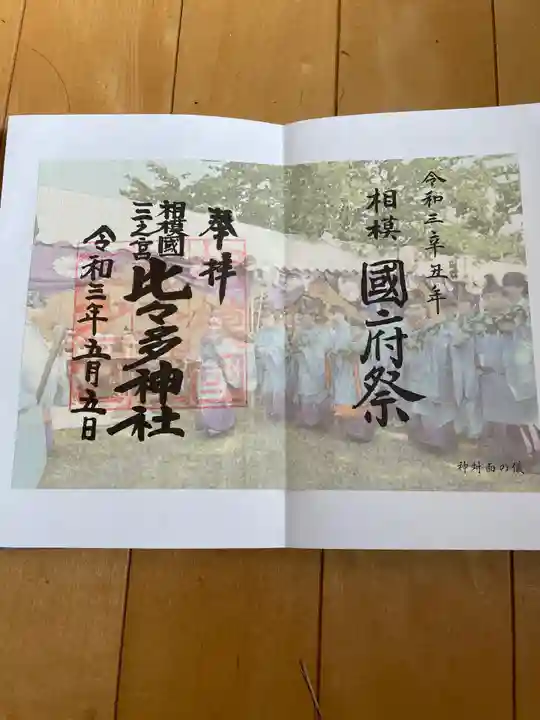 令和三辛丑年
相模
國府祭
神対面の儀
奉拝
相模國
三之宮
比々多神社
令和三年五月五日